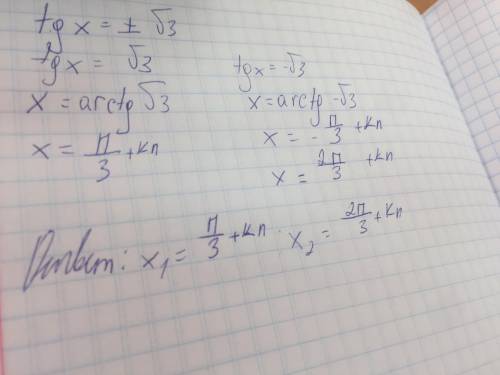 tg x = ± √3
tg x = √3
x = arctg √3
x = π/3 + кπ
tg x = -√3
x = arctg -√3
x = - π/3 + кπ
x = 2π/3 + кπ
Ответ: x₁ = π/3 + кπ x₂ = 2π/3 + кπ